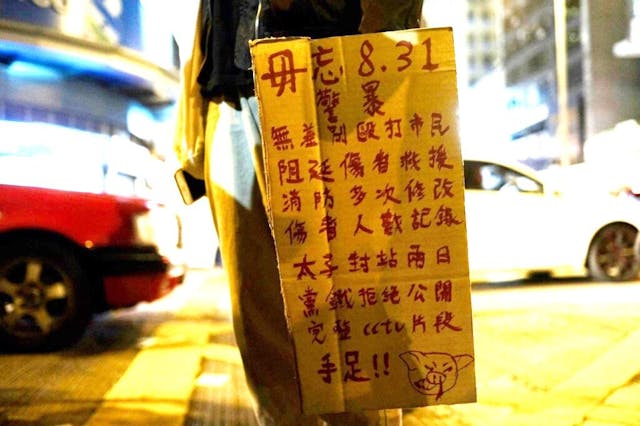 毋忘8.31
警暴
無差別毆打市民
阻延傷者救援
消防多次修改
傷者人數記錄
太子封站兩日
黨鐵拒絕公開
完整cctv片段
手足!!